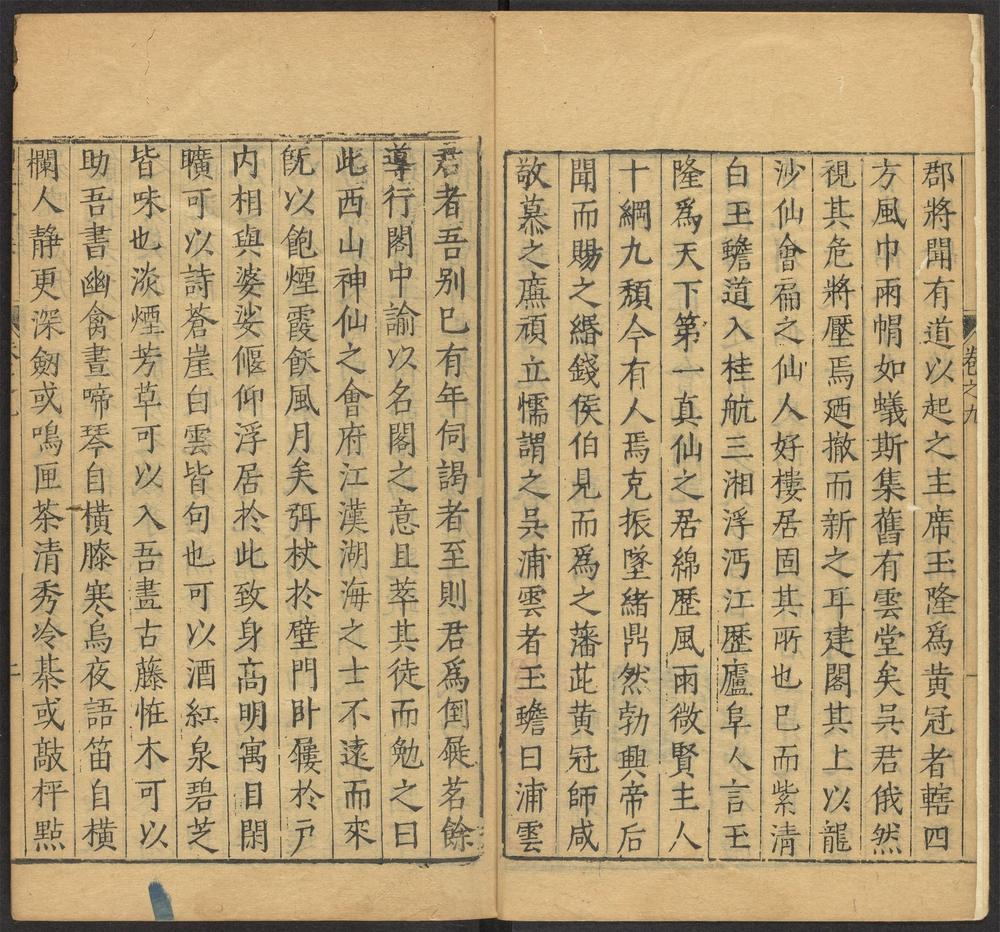 卷之九
郡將聞有道以起之主席玉隆爲黃冠者轄四
方風巾雨帽如蟻斯集舊有雲堂矣吳君俄然
視其危將壓焉廼撤而新之耳建閣其上以龍
沙仙會扁之仙人好樓居固其所也已而紫清
白玉蟾道入桂航三湘浮沔江歷廬阜人言玉
隆爲天下第一真仙之居綿歷風雨微賢主人
十綱九頹今有人焉克振墜緒鼎然勃興帝后
聞而賜之緡錢侯伯見而爲之藩茈黃冠師咸
敬慕之廉頑立懦謂之吳浦雲者玉蟾曰浦雲
君者吾别巳有年伺謁者至則君爲倒屣茗餘
導行閣中諭以名閣之意且萃其徒而勉之曰
此西山神仙之會府江漢湖海之士不遠而來
旣以飽煙霞飫風月矣弭杖於壁門卧屨於戸
内相與婆娑偃仰浮居於此致身高明寓目閑
曠可以詩蒼崖白雲皆句也可以酒紅泉碧芝
皆味也淡煙芳草可以入吾畫古藤恠木可以
助吾書幽禽晝啼琴自横膝寒烏夜語笛自横
欄人静更深劒或鳴匣茶清秀冷棊或敲枰點